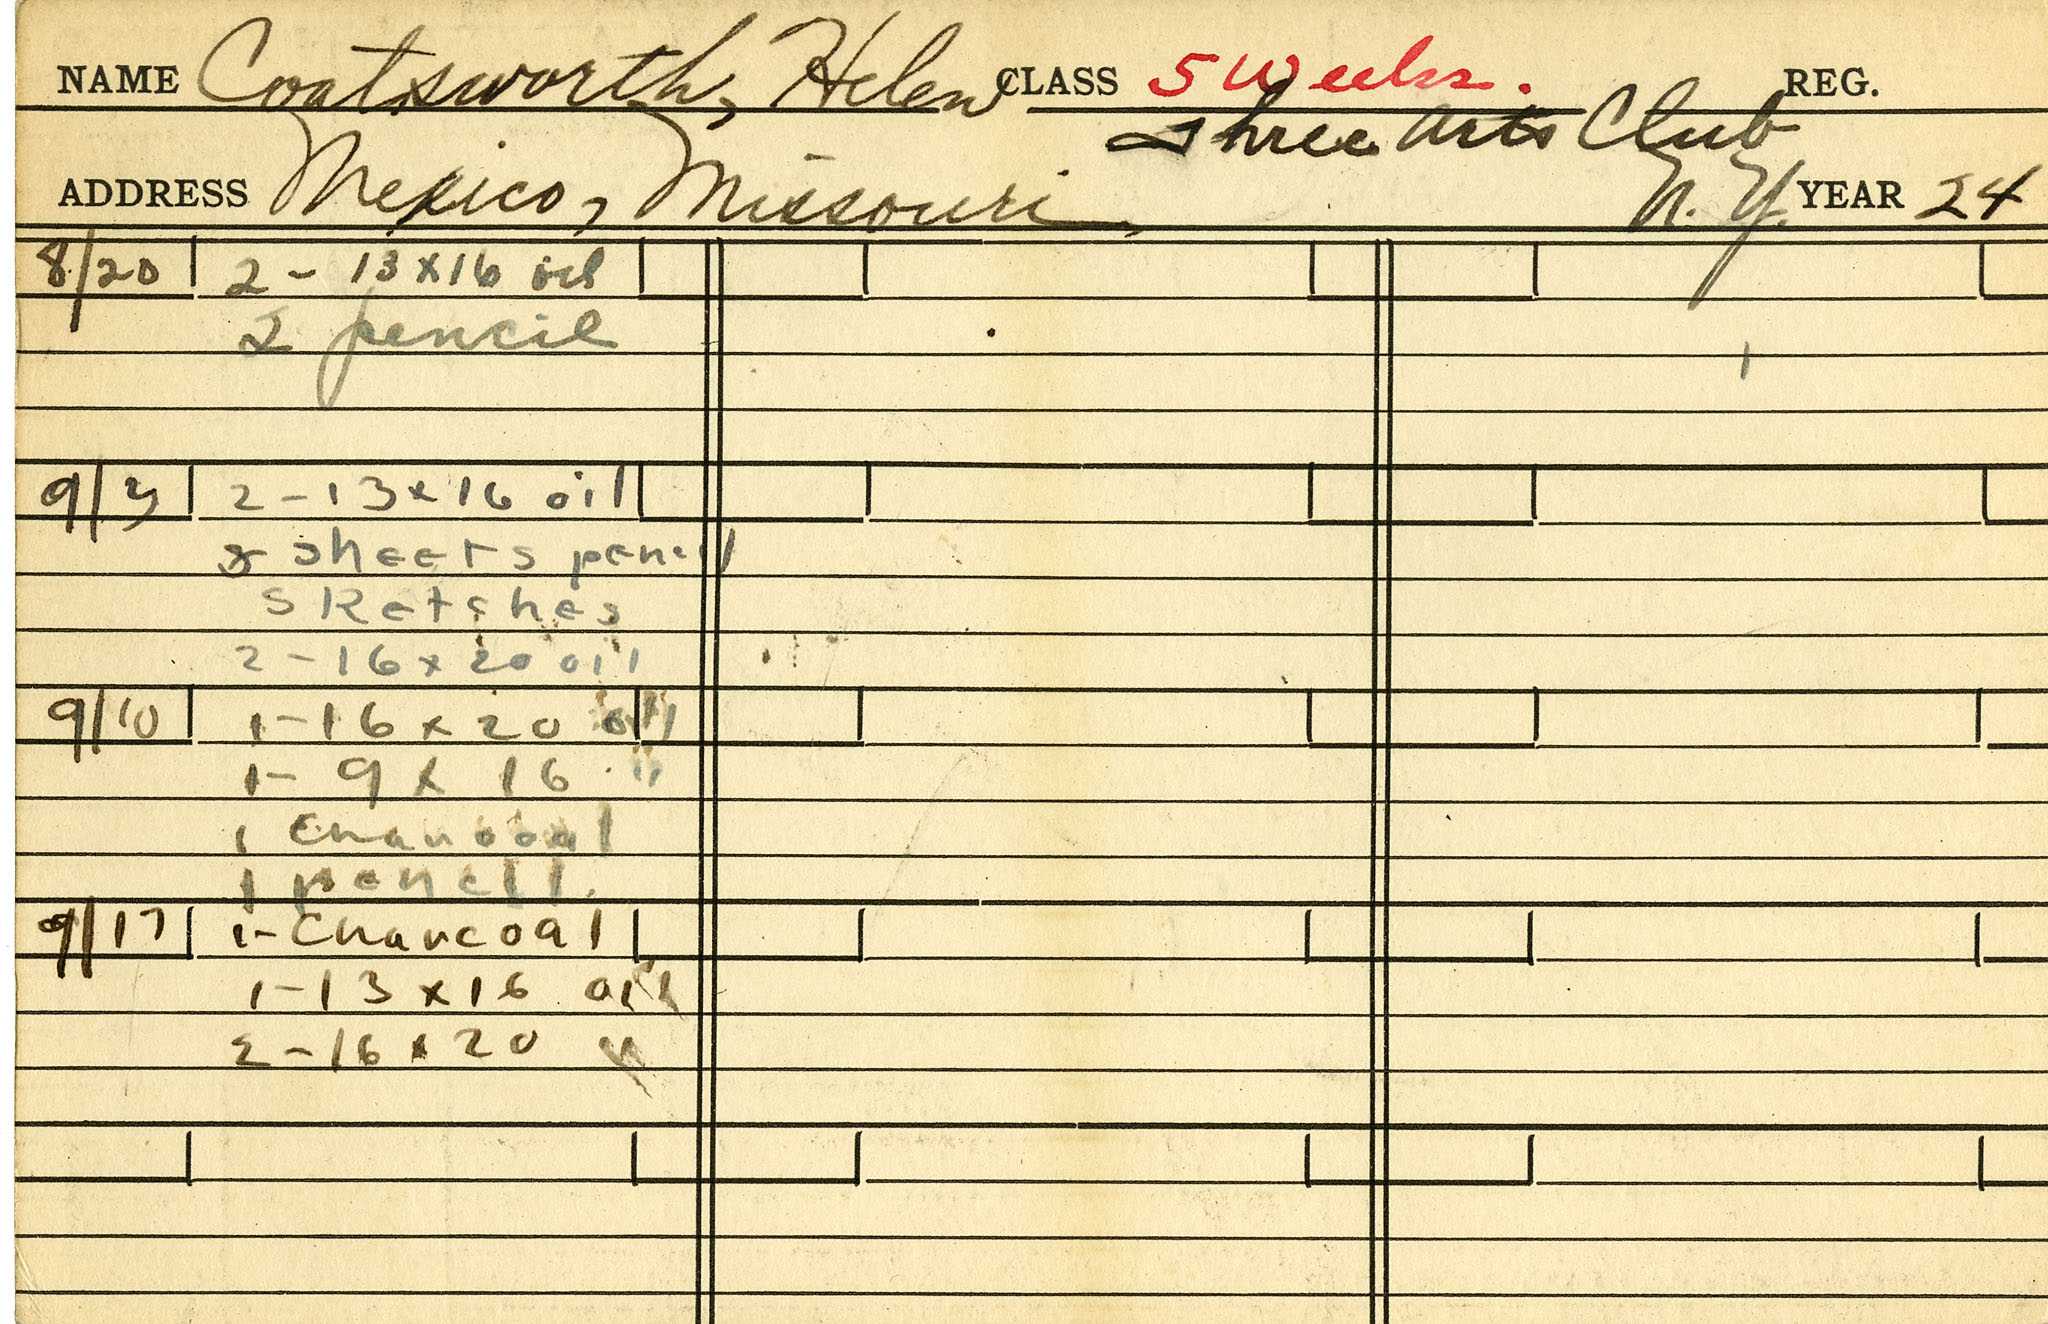 NAME Coatsworth, Helen CLASS 5 Weeks. REG.
Three Arts Club
ADDRESS Mexico, Missouri, N.Y. YEAR 24
8/20 2 - 13 x 16 oil
2 pencil
9/3 2 - 13 x 16 oil
sheets pencil
sketches
2 - 16 x 20 oil
9/10 1 - 16 x 20 oil
1 - 9 x 16 "
1 Charcoal
1 pencil.
9/17 1 - Charcoal
1 - 13 x 16 oil
2 - 16 x 20 "